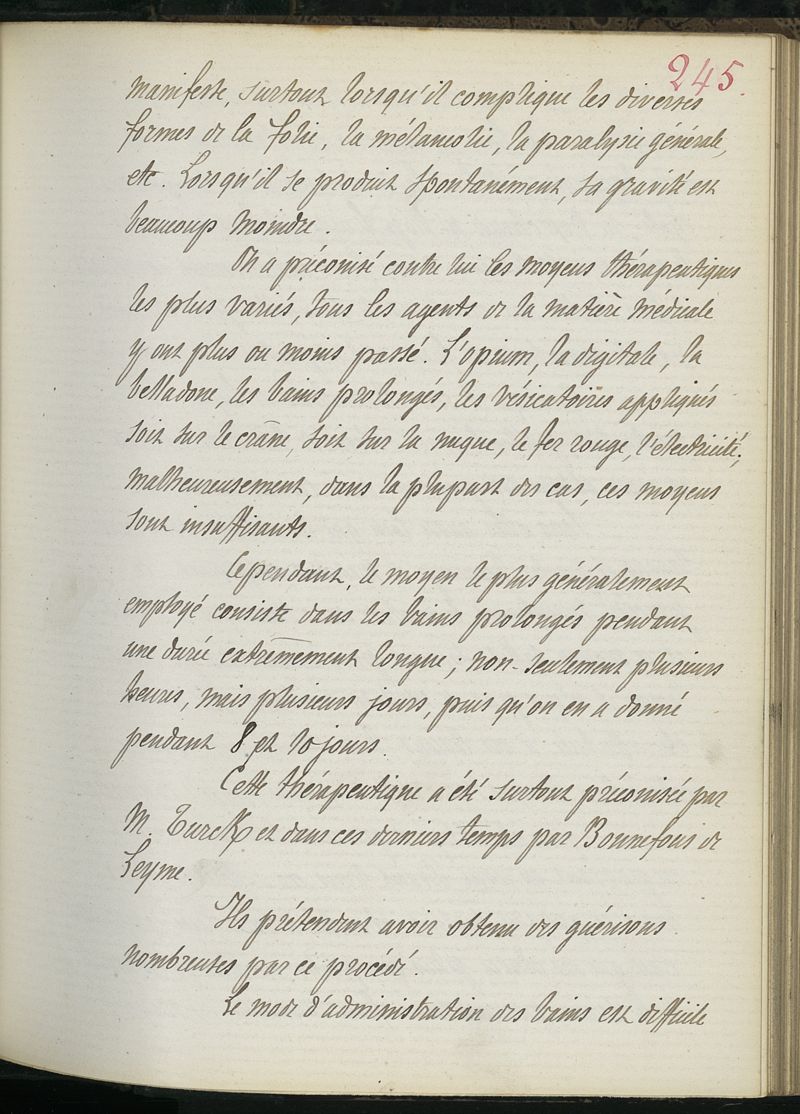 245.
manifeste, surtout lorsqu'il complique les diverses
formes de la folie, la mélancolie, la paralysie générale,
etc. Lorsqu'il se produit spontanément, sa gravité est
beaucoup moindre.
On a préconisé contre lui les moyens thérapeutiques
les plus variés, tous les agents de la matière médicale
y ont plus ou moins passé. L'opium, la digitale, la
belladone, les bains prolongés, les vésicatoires appliqués
soit sur le crâne, soit sur la nuque, le fer rouge, l'électricité;
malheureusement, dans la plupart des cas, ces moyens
sont insuffisants.
Cependant, le moyen le plus généralement
employé consiste dans les bains prolongés pendant
une durée extrêmement longue; non-seulement plusieurs
heures, mais plusieurs jours, puis qu'on en a donné
pendant 8 et 10 jours.
Cette thérapeutique a été surtout préconisée par
M. Turck et dans ces derniers temps par Bonnefous de
Leyme.
Ils prétendent avoir obtenu des guérisons
nombreuses par ce procédé.
Le mode d'administration des bains est difficile